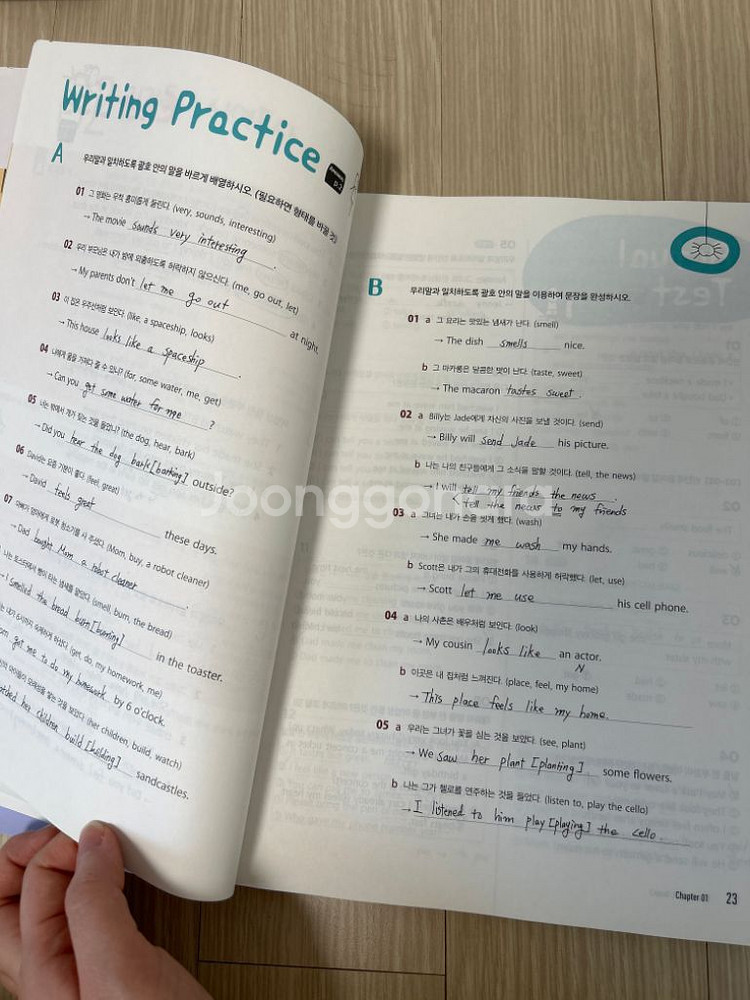 Writing Practice
A 우리말과 일치하도록 괄호 안의 말을 바르게 배열하시오. (필요하면 형태를 바꿀 것)
01 그 영화는 무척 흥미롭게 들린다. (very, sounds, interesting)
→ The movie sounds very interesting.
02 우리 부모님은 내가 밤에 외출하도록 허락하지 않으신다. (me, go out, let)
→ My parents don't let me go out at night.
03 이 집은 우주선처럼 보인다. (like, a spaceship, looks)
→ This house looks like a spaceship.
04 나에게 물을 가져다 줄 수 있니? (for, some water, me, get)
→ Can you get some water for me ?
05 너는 밖에서 개가 짖는 것을 들었니? (the dog, hear, bark)
→ Did you hear the dog bark[barking] outside?
06 David는 요즘 기분이 좋다. (feel, great)
→ David feels great these days.
07 아빠가 엄마에게 로봇 청소기를 사 주셨다. (Mom, buy, a robot cleaner)
→ Dad bought Mom a robot cleaner.
나는 토스터에서 빵이 타는 냄새를 맡았다. (smell, burn, the bread)
→ I smelled the bread burn[burning] in the toaster.
(get, do, my homework, me)
get me to do my homework by 6 o'clock.
(her children, build, watch)
her children build[building] sandcastles.
B 우리말과 일치하도록 괄호 안의 말을 이용하여 문장을 완성하시오.
01 a 그 요리는 맛있는 냄새가 난다. (smell)
→ The dish smells nice.
b 그 마카롱은 달콤한 맛이 난다. (taste, sweet)
→ The macaron tastes sweet.
02 a Billy는 Jade에게 자신의 사진을 보낼 것이다. (send)
→ Billy will send Jade his picture.
b 나는 나의 친구들에게 그 소식을 말할 것이다. (tell, the news)
→ I will tell my friends the news.
tell the news to my friends
03 a 그녀는 내가 손을 씻게 했다. (wash)
→ She made me wash my hands.
b Scott은 내가 그의 휴대전화를 사용하게 허락했다. (let, use)
→ Scott let me use his cell phone.
04 a 나의 사촌은 배우처럼 보인다. (look)
→ My cousin looks like an actor.
N
b 이곳은 내 집처럼 느껴진다. (place, feel, my home)
→ This place feels like my home.
05 a 우리는 그녀가 꽃을 심는 것을 보았다. (see, plant)
→ We saw her plant [planting] some flowers.
b 나는 그가 첼로를 연주하는 것을 들었다. (listen to, play the cello)
→ I listened to him play[playing] the cello.
Chapter 01 23
Joonggonara